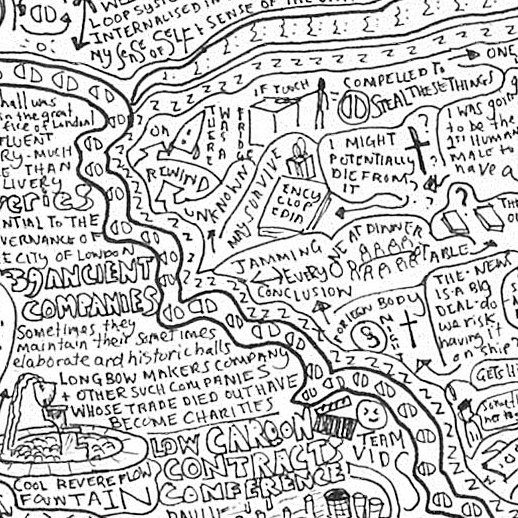 LOOP SYS
INTERNALISED IN
MY SENSE OF SELF + SENSE OF THE
hall was
in the great
fice of London
FLUENT
RY-MUCH
E THAN
LIVERY
eries
NTIAL TO THE
VERNANCE OF
E CITY OF LONDON
39 ANCIENT
COMPANIES
Sometimes they
maintain their sometimes
elaborate and historic halls
LONGBOW MAKERS COMPANY
+ OTHER SUCH COMPANIES
WHOSE TRADE DIED OUT HAVE
BECOME CHARITIES
COOL REVERE FLOW
FOUNTAIN
LOW CARBON
CONTRACTS
CONFERENCE
TEAM
VIDS
OR
WAS A
FRIDGE
IF TOUCH
COMPELLED TO
STEAL THESE THINGS
ONE
REWIND
UNKNOWN
MAY SURVIVE
ENCY
CLOP
EDIA
I MIGHT
POTENTIALLY
DIE FROM
IT
I WAS goin
to be the
1st HUMAN
MALE to
have a
JAMMING
EVERYONE AT DINNER
TABLE
CONCLUSION
FOREIGN BODY
THE NEW
IS A BIG
DEAL - do
we risk
having it
on ship?
GETS HI